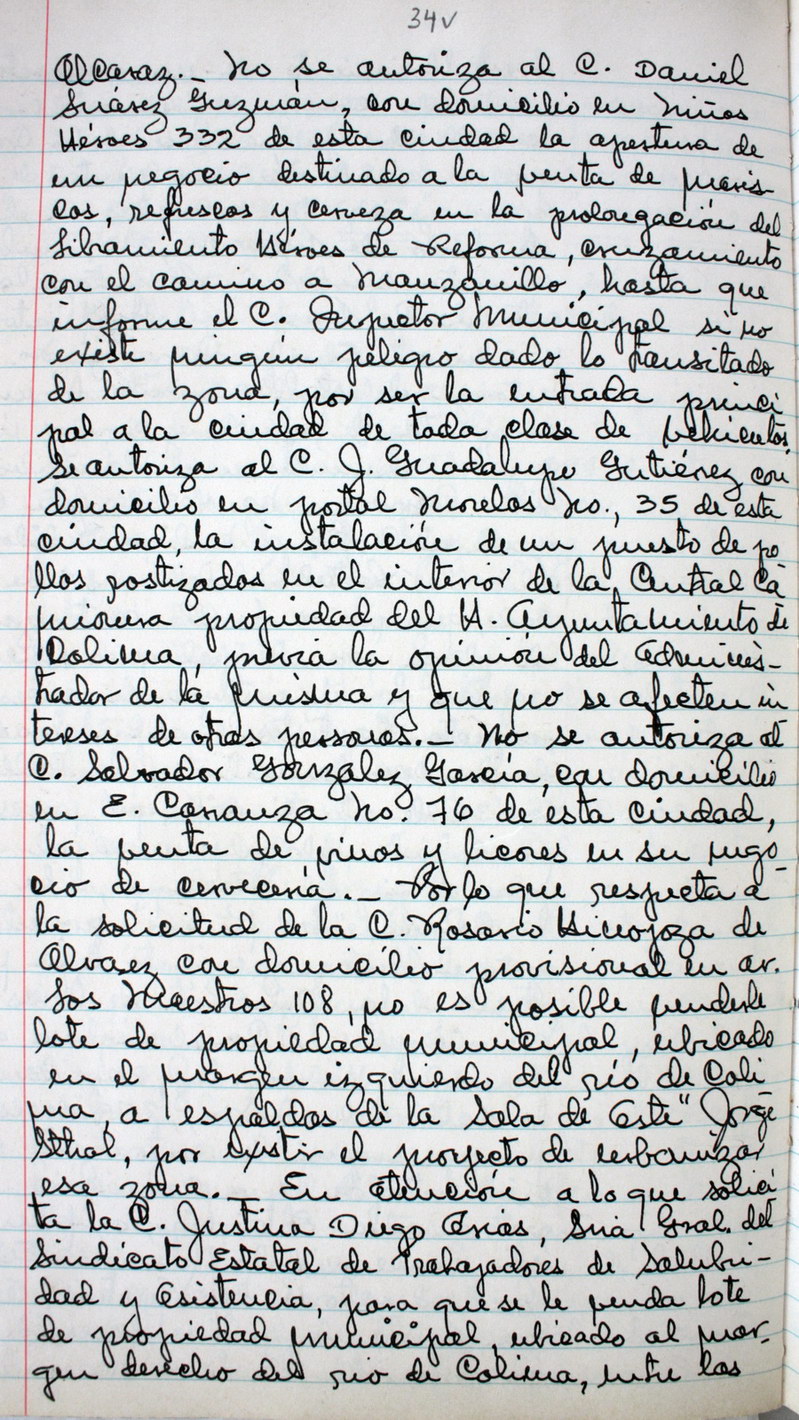 34v
Alcaraz._ No se autoriza al C. Daniel
Suárez Guzmán, con domicilio en Niños
Héroes 332 de esta ciudad la apertura de
un negocio destinado a la venta de maris-
cos, refrescos y cerveza en la prolongación del
Libramiento Héroes de Reforma, cruzamiento
con el camino a Manzanillo, hasta que
informe el C. Inspector Municipal si no
existe ningún peligro dado lo transitado
de la zona, por ser la entrada princi
pal a la ciudad de toda clase de vehículos.
Se autoriza al C. J. Guadalupe Gutiérrez con
domicilio en portal Morelos No., 35 de esta
ciudad, la instalación de un puesto de po
llos rostizados en el interior de la Central Ca
mionera propiedad del H. Ayuntamiento de
Colima, previa la opinión del Adminis-
trador de la misma y que no se afecten in
tereses de otras personas._ No se autoriza al
C. Salvador González García, con domicilio
en E. Carranza No. 76 de esta ciudad,
la venta de vinos y licores en su nego-
cio de cervecería._ Por lo que respecta a
la solicitud de la C. Rosario Hinojoza de
Alvarez con domicilio provisional en av.
Los Maestros 108, no es posible venderle
lote de propiedad municipal, ubicado
en el margen izquierdo del río de Coli-
ma, a espaldas de la Sala de Arte" Jorge
Sthal, por existir el proyecto de urbanizar
esa zona._ En atención a lo que solici
ta la C. Justina Diego Arias, Sria Gral. del
Sindicato Estatal de Trabajadores de Salubri-
dad y Asistencia, para que se le venda lote
de propiedad municipal, ubicado al mar-
gen derecho del río de Colima, entre las